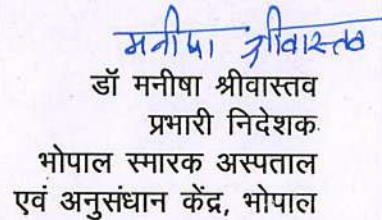 मनीषा श्रीवास्तव
डॉ मनीषा श्रीवास्तव
प्रभारी निदेशक
भोपाल स्मारक अस्पताल
एवं अनुसंधान केंद्र, भोपाल